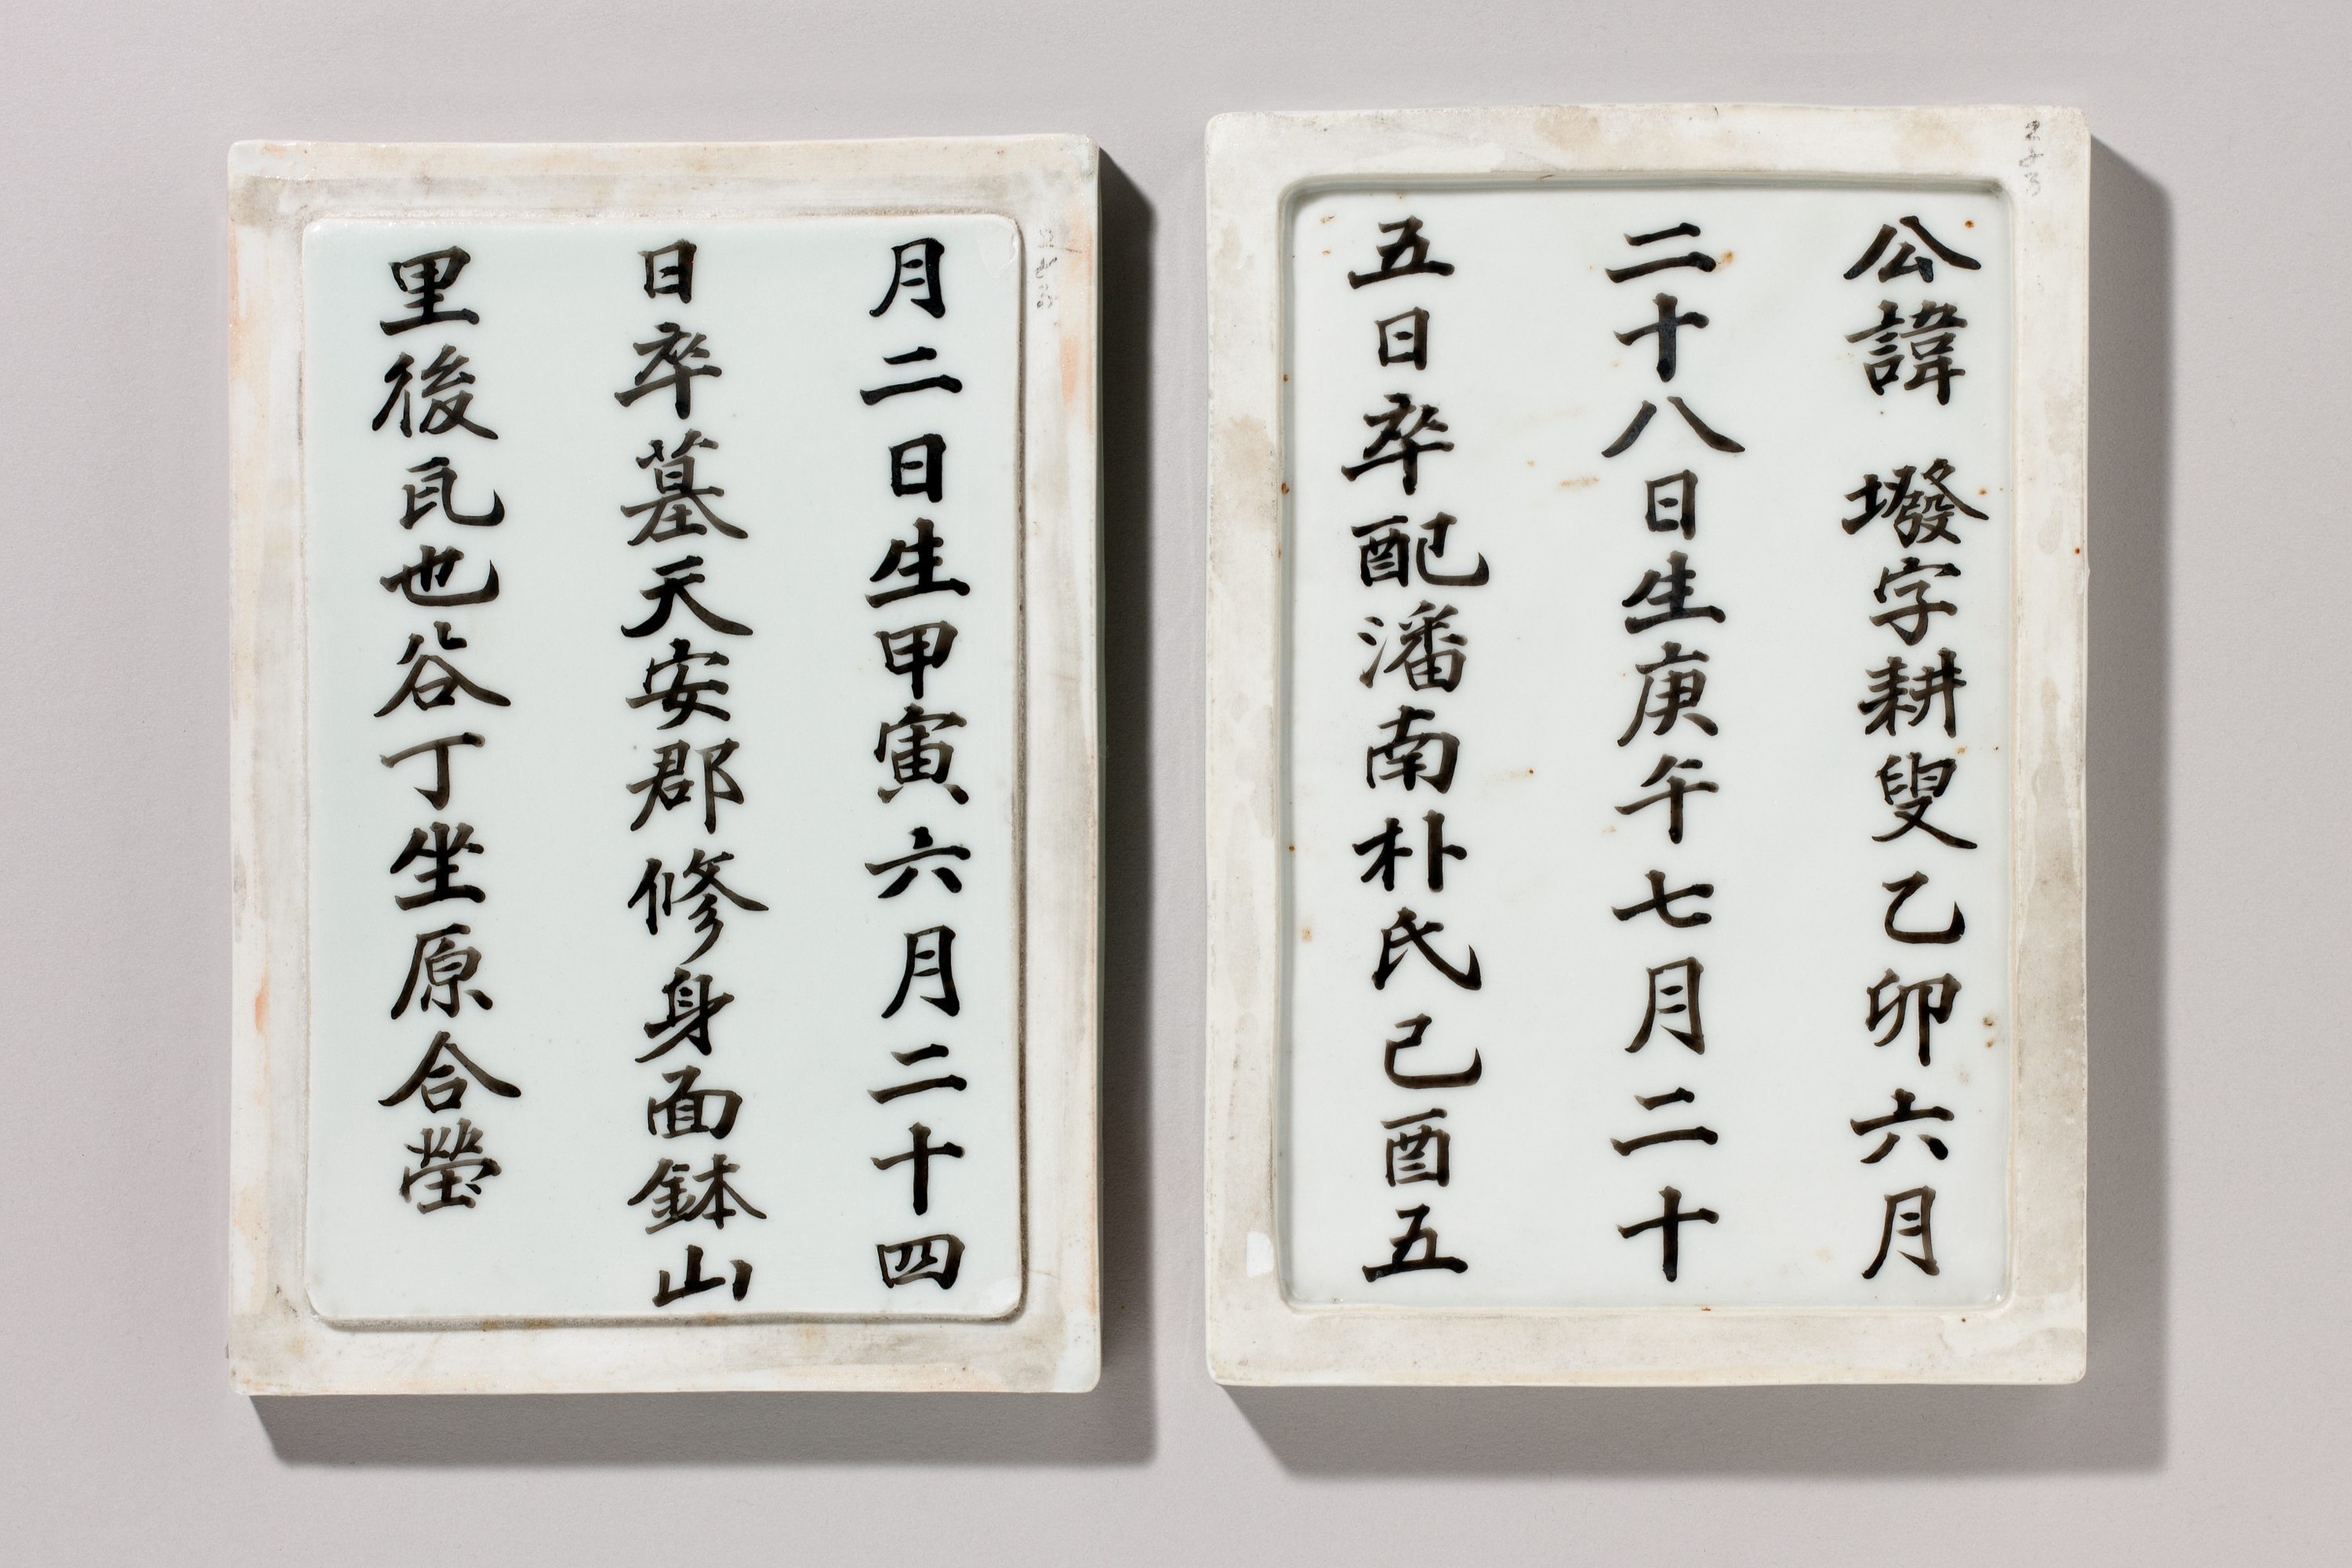 公諱 墢字耕叟乙卯六月
二十八日生庚午七月二十
五日卒配潘南朴氏己酉五
月二日生甲寅六月二十四
日卒墓天安郡修身面鉢山
里後瓦也谷丁坐原合塋